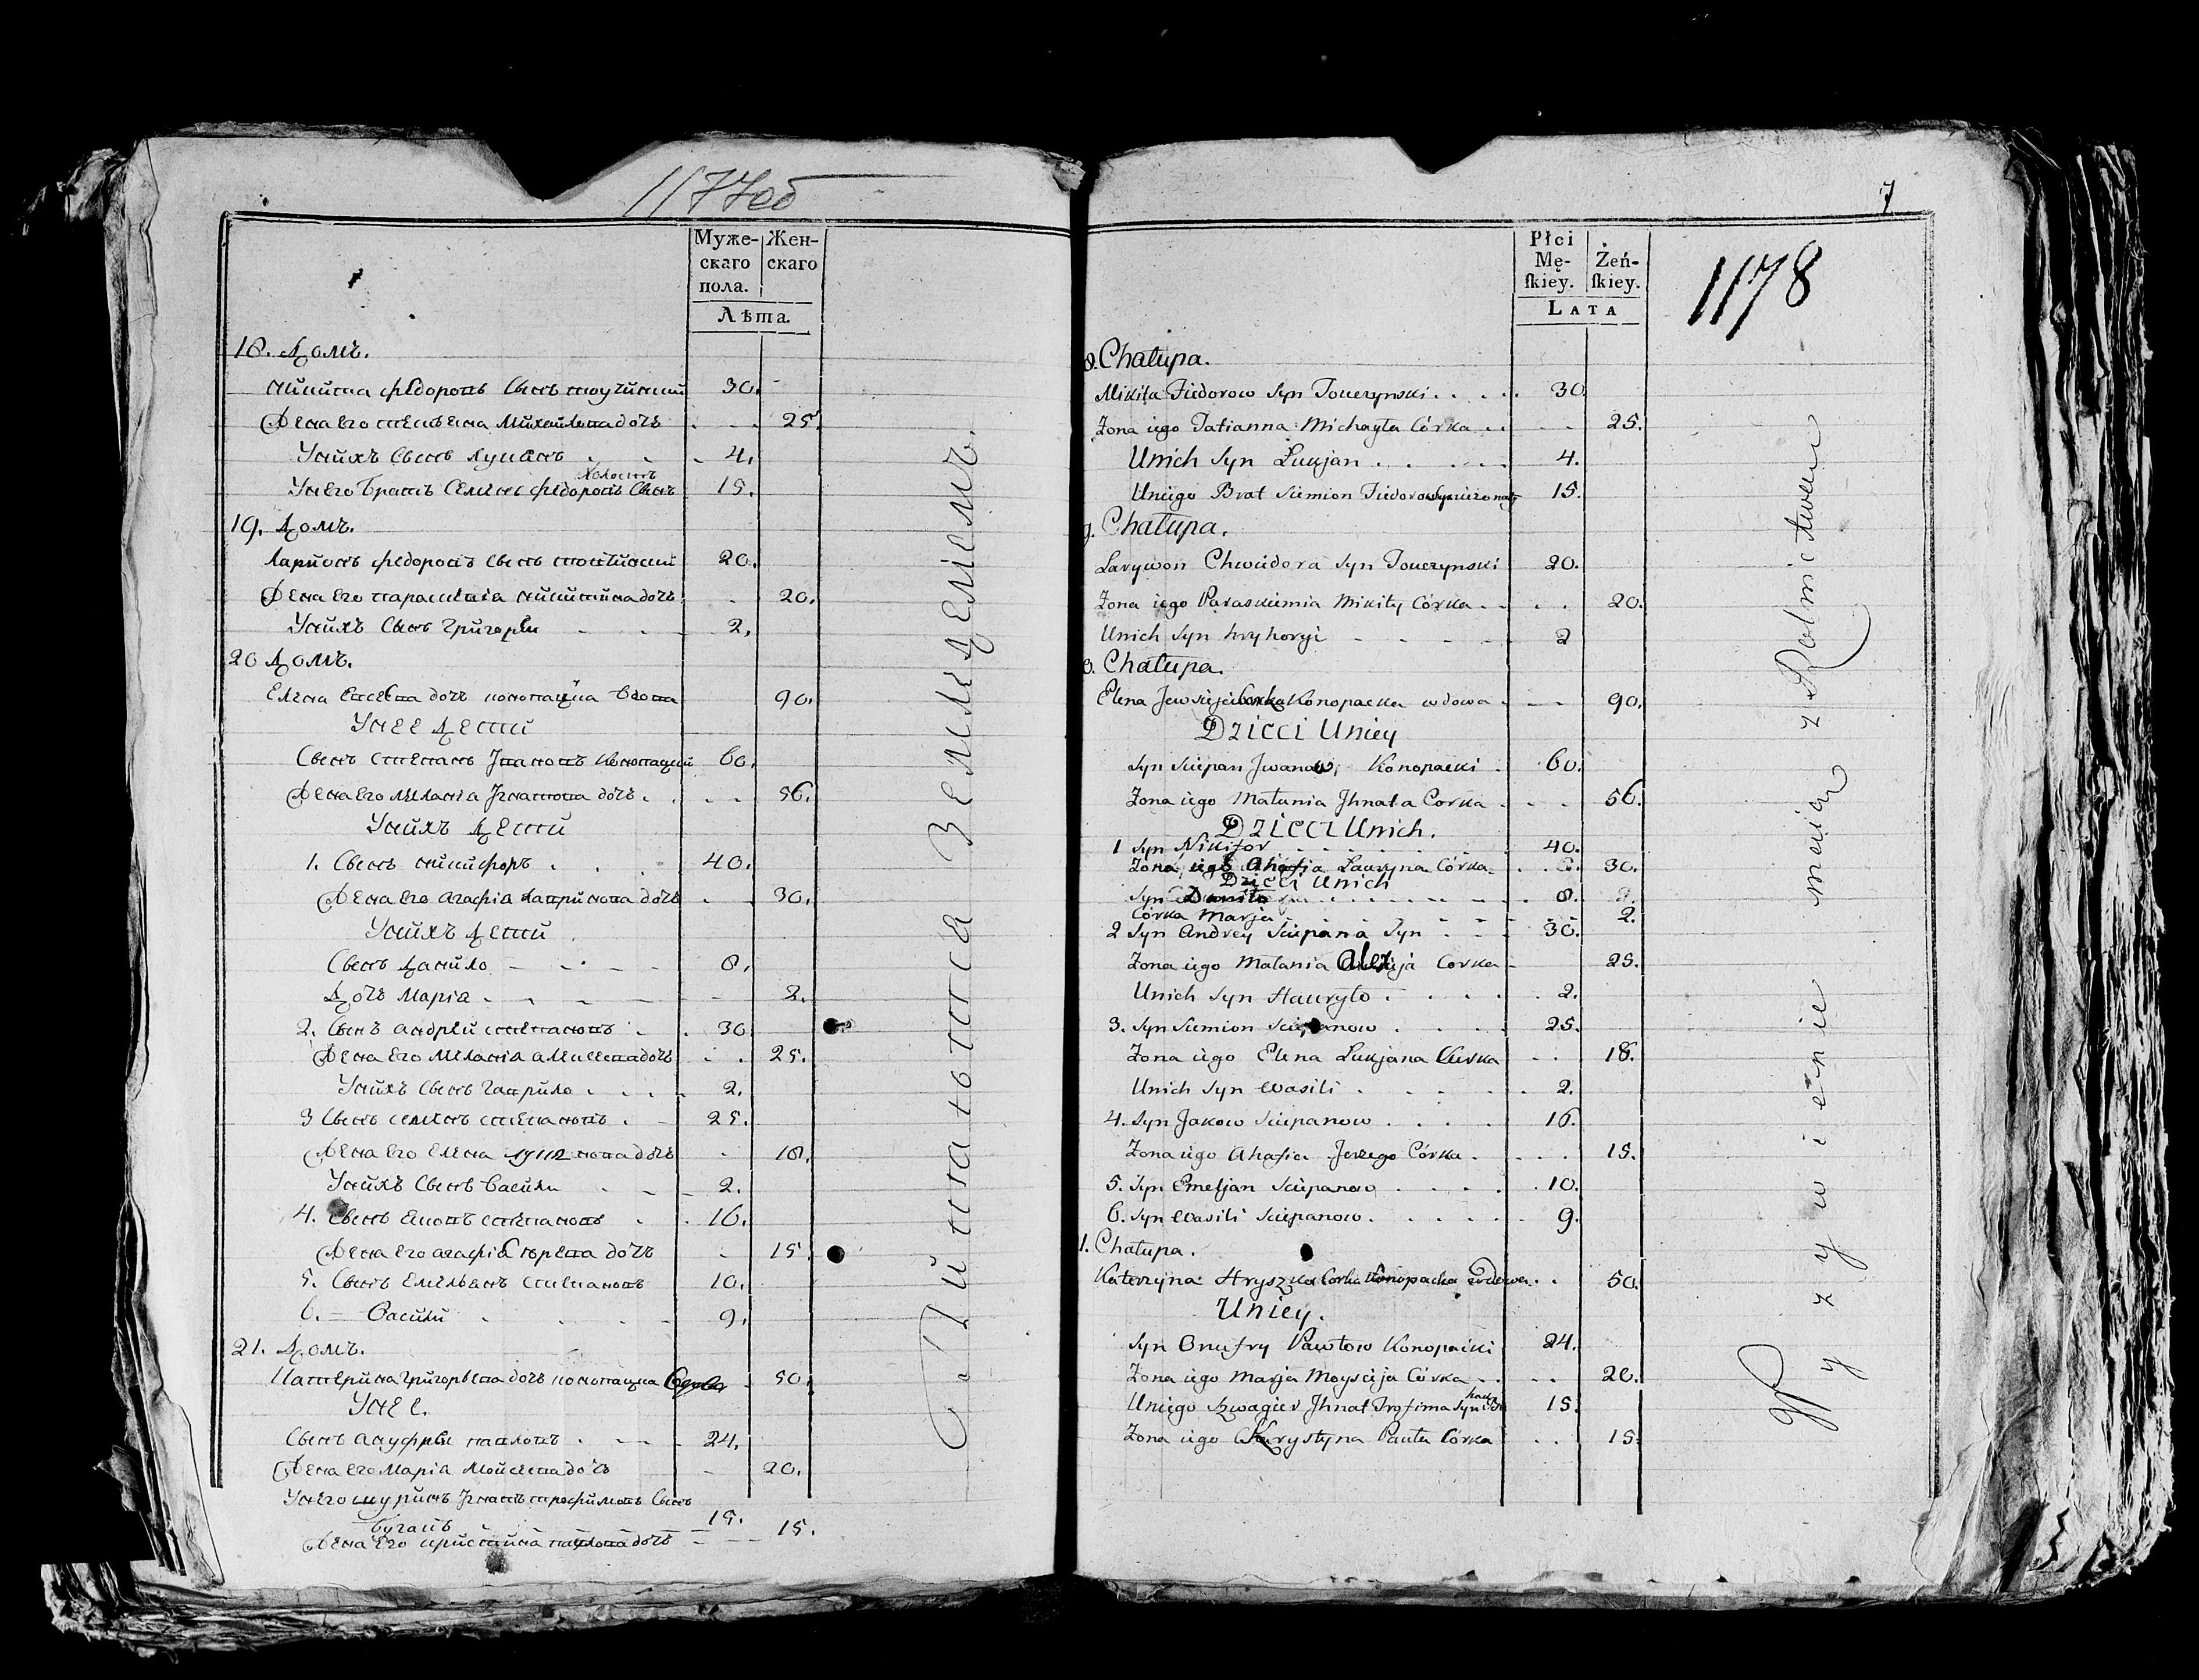 1177об
Муже-
скаго
пола.
Жен-
скаго
Лѣта.
18. Домъ.
Микита Федоровъ Сынъ 30.
Жена его Татьяна Михайлова дочь 25.
У нихъ Сынъ Лукянъ 4.
холостъ
У него Братъ Семенъ Федоровъ Сынъ 15.
19. Домъ.
Ларионъ Федоровъ Сынъ Точинский 20.
Жена его Параскевiа Микитина дочь 20.
У нихъ Сынъ Григорѣи 2.
20 Домъ.
Елена Евсѣева дочь Конопацка вдова 90.
У нее дети
Сынъ Степанъ Ивановъ Конопацкий 60.
Жена его Меланiа Игнатова дочь 56.
У нихъ Дети
1. Сынъ Никифоръ 40.
Жена его Агафiа Лавринова дочь 30.
У нихъ Дети
Сынъ Данило 8.
Дочь Марiа 2.
2. Сынъ Андрѣи Степановъ 30
Жена его Меланiа Алисеева дочь 25.
У нихъ Сынъ Гаврило 2.
3 Сынъ Семенъ Степановъ 25.
Жена его Елена Лукянова дочь 18.
У нихъ Сынъ Васили 2.
4. Сынъ Яковъ Степановъ 16.
Жена его Агафiа Юрева дочь 15
5. Сынъ Емельянъ Степановъ 10.
6. = Васили 9.
21. Домъ.
Катерина Григорьева дочь Конопацка вдова 50.
У нее.
Сынъ Ануфрѣи Павловъ 24.
Жена его Марiа Мойсеева дочь 20.
У него шуринъ Игнатъ Трофимовъ Сынъ
15.
Жена его Кристина Павлова дочь 15.
Питаются Земледелiемъ
7
1178
Płci
Mę-
ſkiey.
Żeń-
ſkiey.
LATA
8. Chałupa.
Mikita Fiedorow Syn Toczynski 30
Zona iego Tatianna Michayła Córka 25.
Unich Syn Łukjan 4.
Uniego Brat Siemion Fiedorow Syn nieżonaty 15.
9. Chałupa.
Larywon Chwiedora Syn Toczynski 20.
Zona iego Paraskiemia Mikity Córka 20.
Unich Syn hryhoryi 2
0. Chałupa.
Elena Jewsieja Corka Konopacka wdowa 90.
Dzieci Uniey
Syn Sciepan Jwanow, Konopacki 60.
Zona iego Matania Jhnata Corka 56.
Dzieci Unich.
1 Syn Nikifor 40.
Zona iego Ahafia Ławryna Córka 30.
Dzieci Unich
Syn Daniło 8.
Córka Marja 2.
2 Syn Andrey Sciepana Syn 30.
Zona iego Matania Corka 25.
Unich Syn Hauryło 2.
3. Syn Siemion Sciepanow 25.
Zona iego Elena Łukjana Curka 18.
Unich Syn Wasili 2.
4. Syn Jakow Sciepanow 16.
Zona iego Ahafia Jerzego Córka 15.
5. Syn Emeljan Sciepanow 10.
6. Syn Wasili Sciepanow 9.
1. Chałupa.
Katerzyna Hryszka Corka Konopacka wdowa 50.
Uniey.
Syn Onufry Pawłow Konopacki 24.
Zona iego Marja Moysieja Córka 20.
Uniego Szwagier Jhnat Trofima Syn 15.
Zona iego Krystyna Pauła Córka 15.
Wyzywienie maią z Rolnictwem